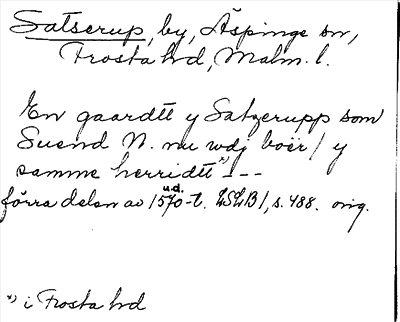 Satserup, by, Äspinge sn,
Frosta hd, Malm. l.
En gaardtt y Satzerupp som
Suend N. nu wdj boër / y
samme herridtt *) - - -
förra delen av 1570-t. u.d. LSLB 1, s. 488. orig.
*) i Frosta hd